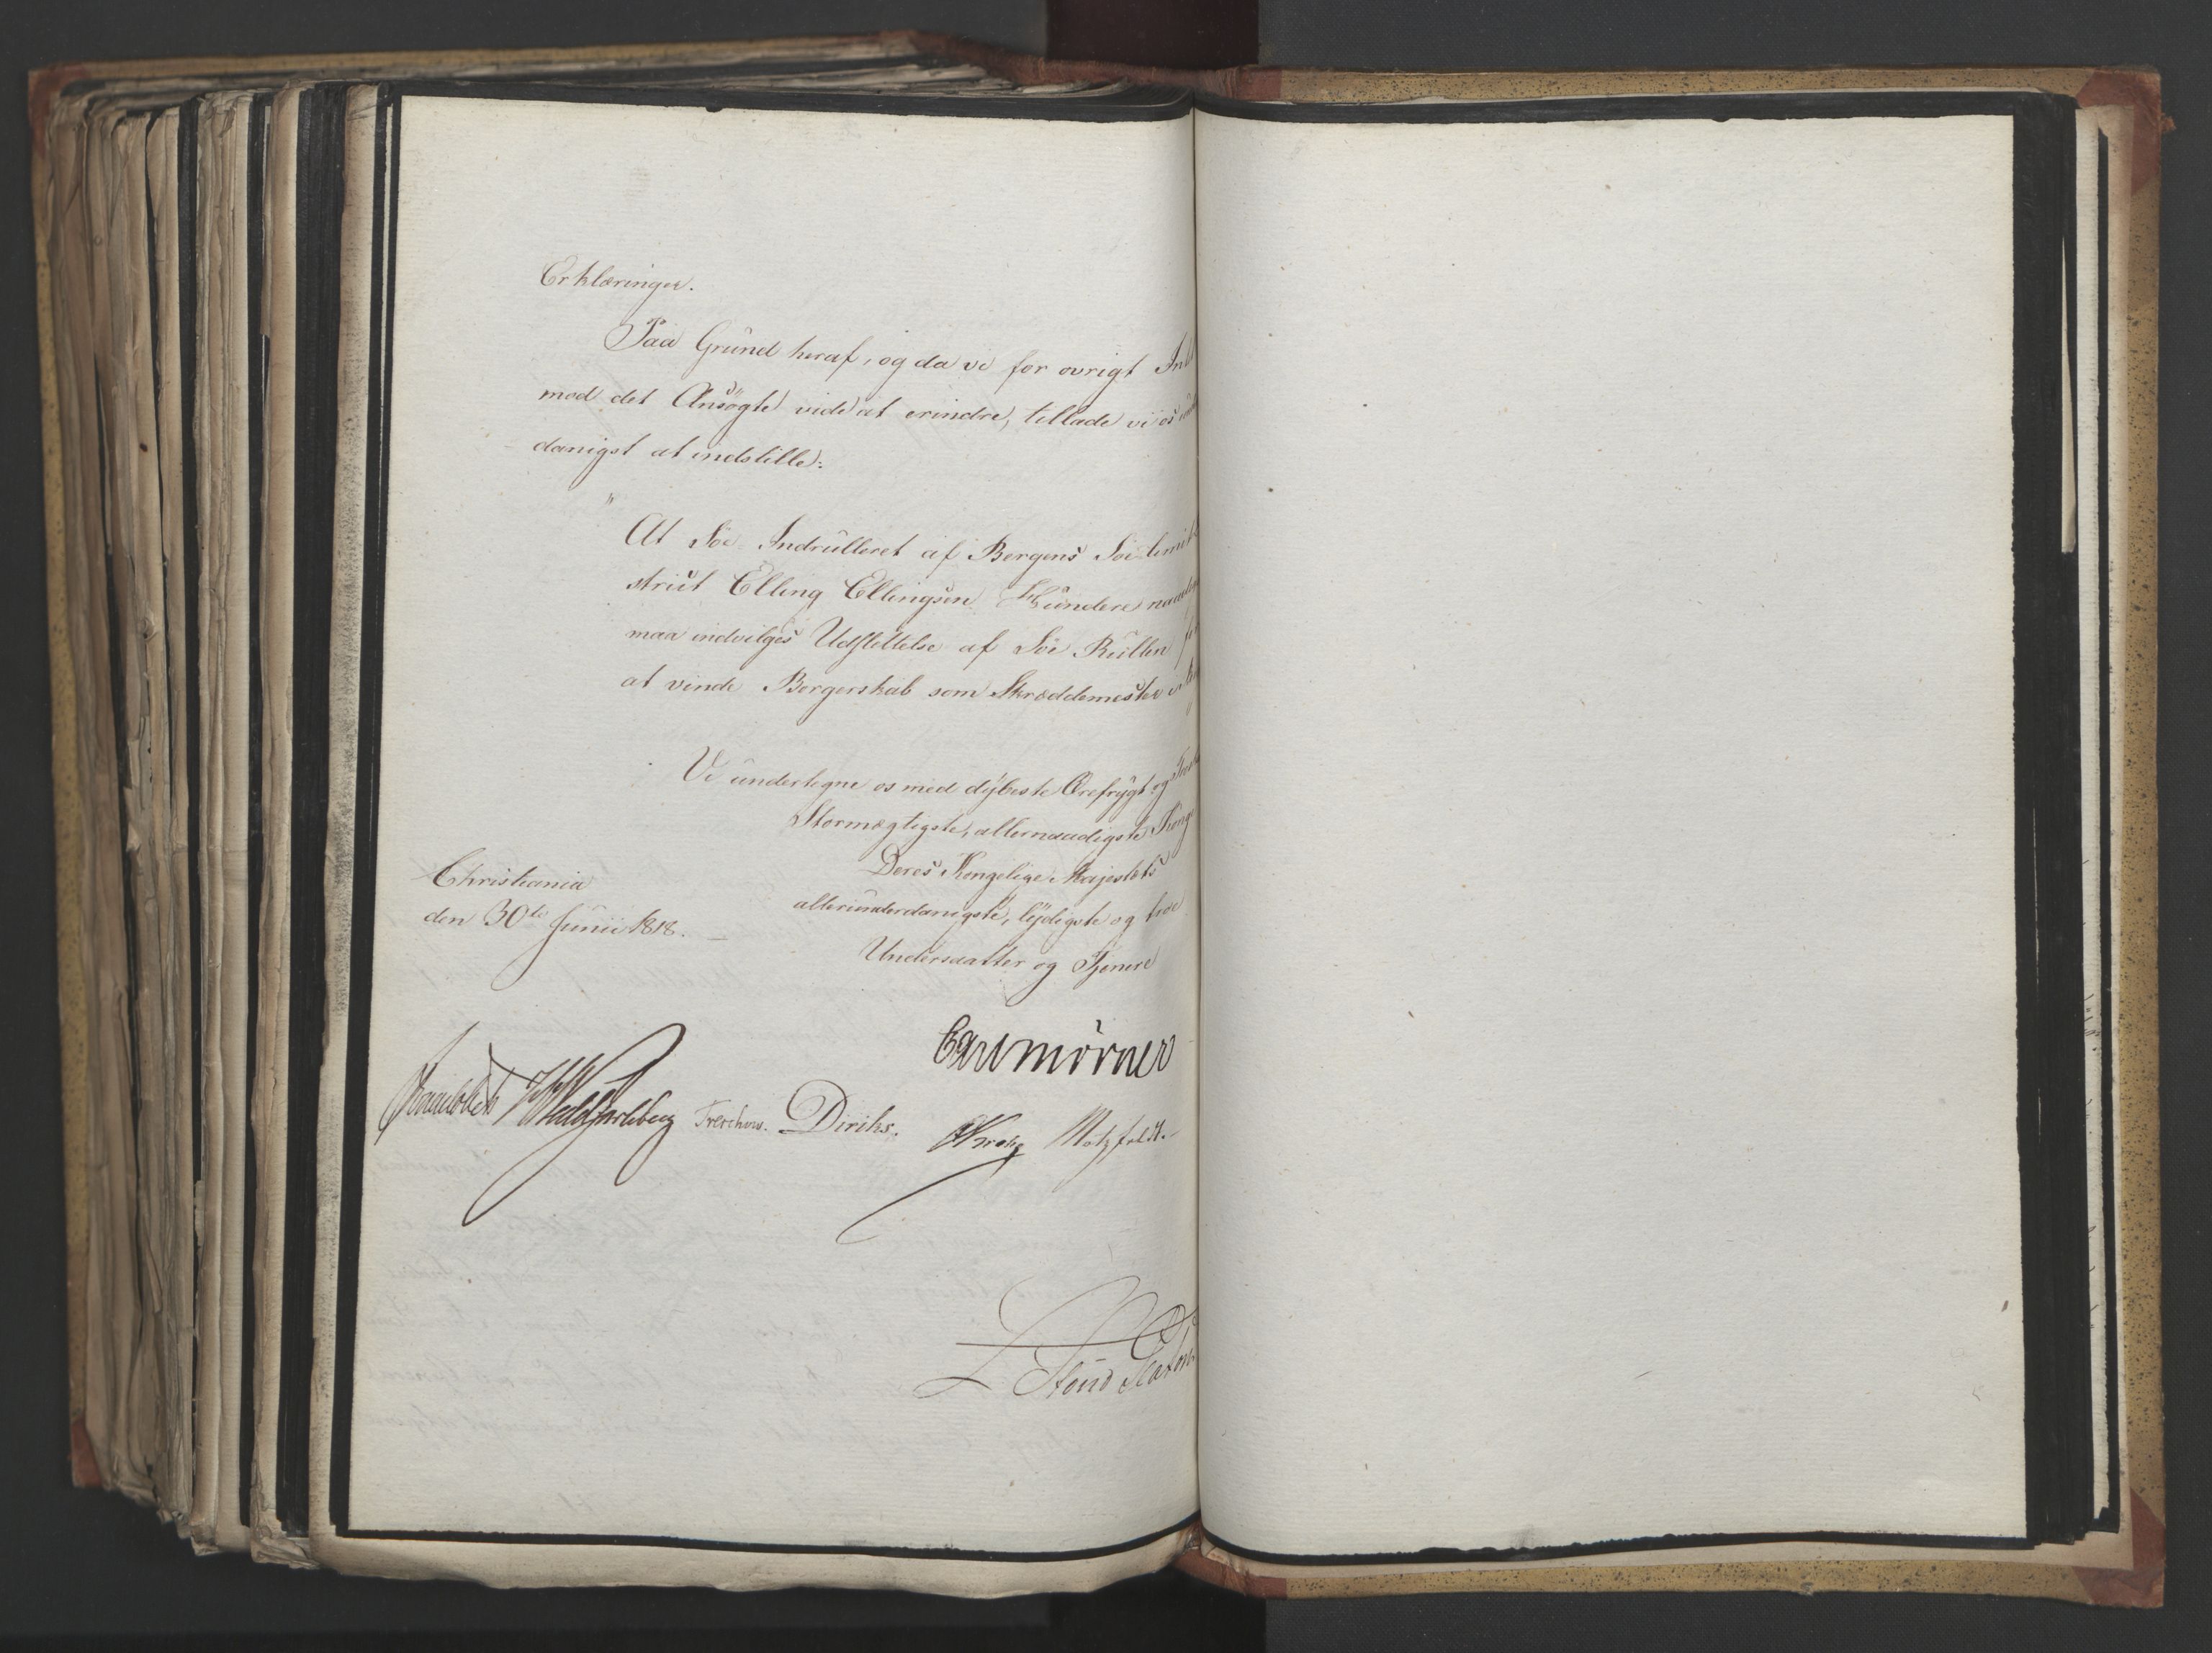 Erklæringer.
Paa Grund heraf, og da vi for øvrigt Intet
mod det Ansøgte vide at erindre, tillade vi os
danigst at indstille:
"At Søe Indrulleret af Bergens Søe
strict Elling Ellingsen Hundere
maa indvilges Udslettelse af Søe Rullen for
at vinde Borgerskab som Skræddemester i
Vi undertegne os med dybeste Ærefrygt og
Stormægtigste, allernaadigste Konge
Deres Kongelige Majestets
allerunderdanigste, lydigste og troe
Undersaatter og Tjenere
Christiania
den 30te Junii 1818.
Carl Mörner
Wedel Jarlsberg Treschow. Diriks. Krog Motzfeldt.